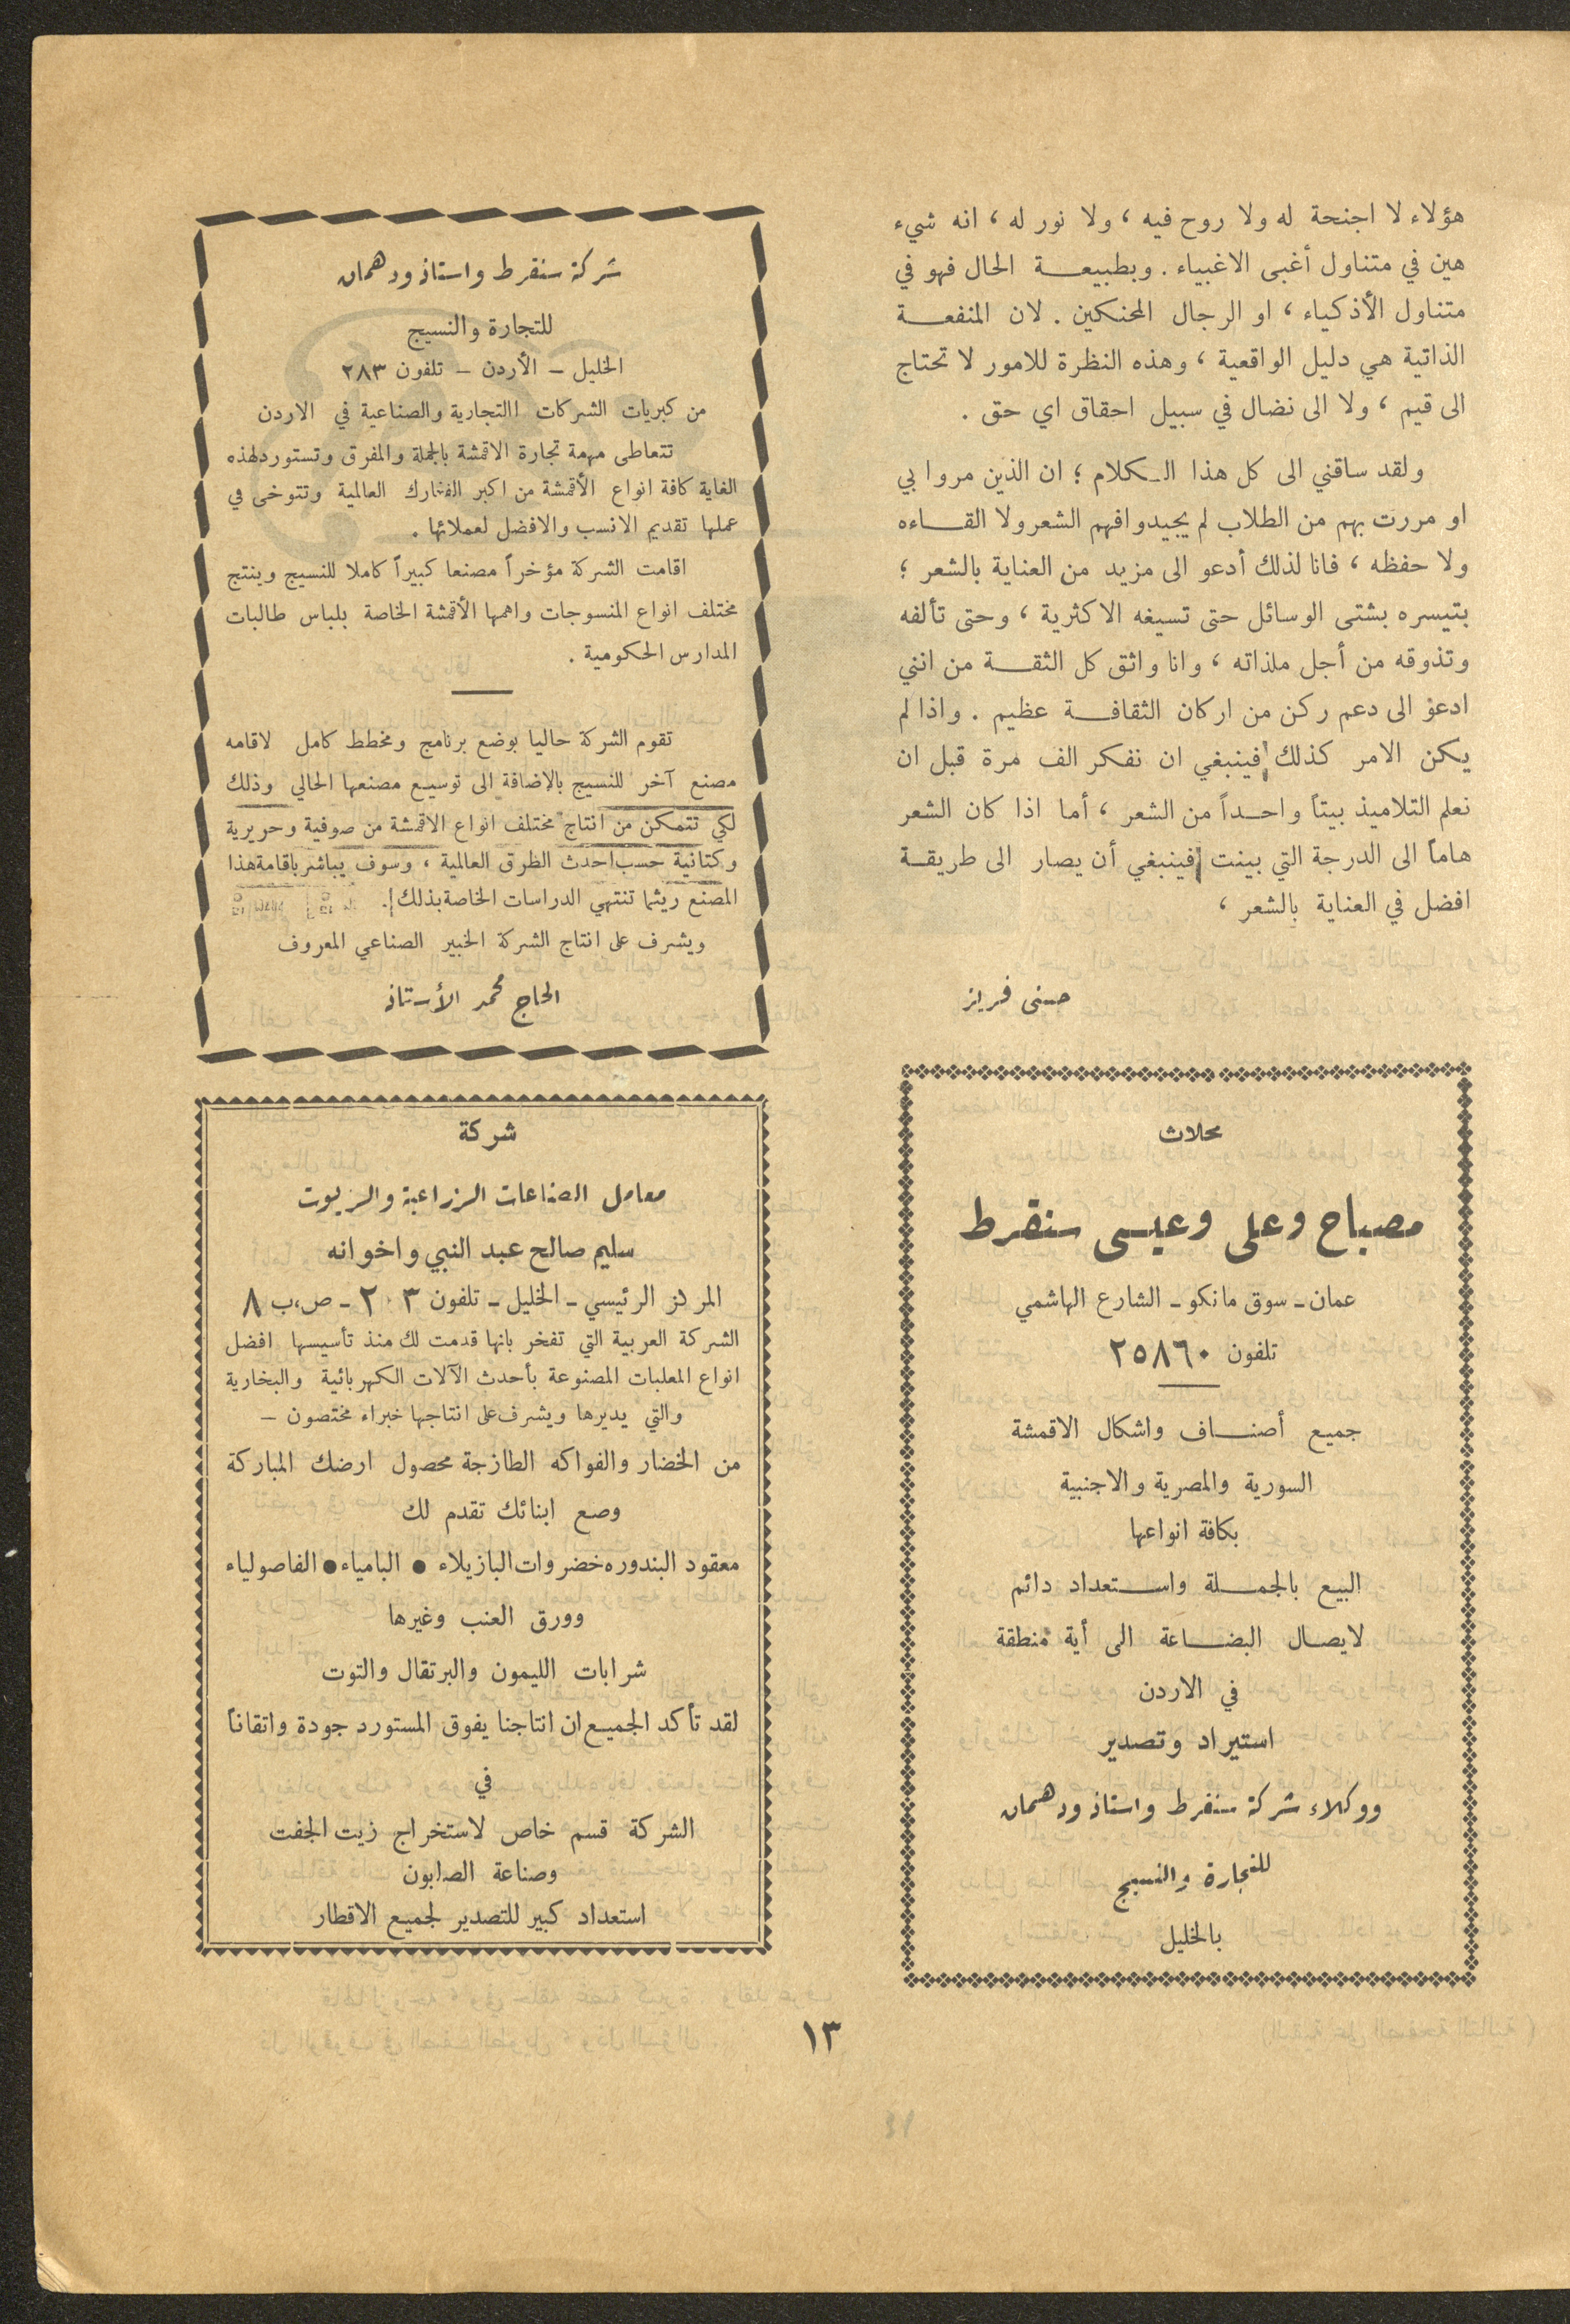 هؤلاء لا اجنحة له ولا روح فيه ، ولا نور له ، انه شيء
هين في متناول أغبى الاغبياء . وبطبيعة الحال فهو في
متناول الأذكياء ، او الرجال المحنكين . لان المنفعة
الذاتية هي دليل الواقعية ، وهذه النظرة للامور لا تحتاج
الى قيم ، ولا الى نضال في سبيل احقاق اي حق .
ولقد ساقني الى كل هذا الكلام ؛ ان الذين مروا بي
او مررت بهم من الطلاب لم يجيدوا فهم الشعر ولا القاءه
ولا حفظه ، فانا لذلك أدعو الى مزيد من العناية بالشعر ؛
بتيسره بشتى الوسائل حتى تسيغه الاكثرية ، وحتى تألفه
وتذوقه من أجل ملذاته ، وانا واثق كل الثقة من انني
ادعو الى دعم ركن من اركان الثقافة عظيم . واذا لم
يكن الامر كذلك فينبغي ان نفكر الف مرة قبل ان
نعلم التلاميذ بيتاً واحداً من الشعر ، أما اذا كان الشعر
هاماً الى الدرجة التي بينت فينبغي أن يصار الى طريقة
افضل في العناية بالشعر ،
حسني فريز
محلات
مصباح وعلي وعيسى سنقرط
عمان - سوق مانكو - الشارع الهاشمي
تلفون ٢٥٨٦٠
جميع أصناف واشكال الاقمشة
السورية والمصرية والاجنبية
بكافة انواعها
البيع بالجملة واستعداد دائم
لايصال البضاعة الى أية منطقة
في الاردن
استيراد وتصدير
ووكلاء شركة سنقرط واستاذ ودهمان
للتجارة والنسيج
بالخليل
شركة سنقرط واستاذ ودهمان
للتجارة والنسيج
الخليل - الأردن - تلفون ٢٨٣
من كبريات الشركات االتجارية والصناعية في الاردن
تتعاطى مهمة تجارة الاقمشة بالجملة والمفرق وتستورد لهذه
الغاية كافة انواع الأقمشة من اكبر الفبارك العالمية وتتوخى في
عملها تقديم الانسب والافضل لعملائها .
اقامت الشركة مؤخراً مصنعا كبيراً كاملا للنسيج وينتج
مختلف انواع المنسوجات واهمها الأقمشة الخاصة بلباس طالبات
المدارس الحكومية .
تقوم الشركة حاليا بوضع برنامج ومخطط كامل لاقامه
مصنع آخر للنسيج بالإضافة الى توسيع مصنعها الحالي وذلك
لكي تتمكن من انتاج مختلف انواع الاقمشة من صوفية وحريرية
وكتانية حسب احدث الطرق العالمية ، وسوف يباشر باقامة هذا
المصنع ريثما تنتهي الدراسات الخاصة بذلك .
ويشرف على انتاج الشركة الخبير الصناعي المعروف
الحاج محمد الأستاذ
شركة
معامل الصناعات الزراعية والزيوت
سليم صالح عبد النبي واخوانه
المركز الرئيسي - الخليل - تلفون ٢٠٣ - ص،ب ٨
الشركة العربية التي تفخر بانها قدمت لك منذ تأسيسها افضل
انواع المعلبات المصنوعة بأحدث الآلات الكهربائية والبخارية
والتي يديرها ويشرف على انتاجها خبراء مختصون -
من الخضار والفواكه الطازجة محصول ارضك المباركة
وصع ابنائك تقدم لك
معقود البندوره خضروات البازيلاء ● البامياء ● الفاصولياء
وورق العنب وغيرها
شرابات الليمون والبرتقال والتوت
لقد تأكد الجميع ان انتاجنا يفوق المستورد جودة واتقاناً
في
الشركة قسم خاص لاستخراج زيت الجفت
وصناعة الصابون
استعداد كبير للتصدير لجميع الاقطار
١٣